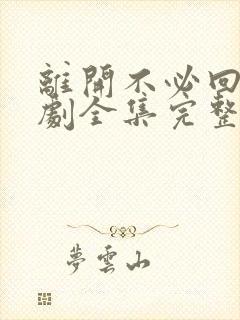 離開不必回
劇全集完整
夢雲山